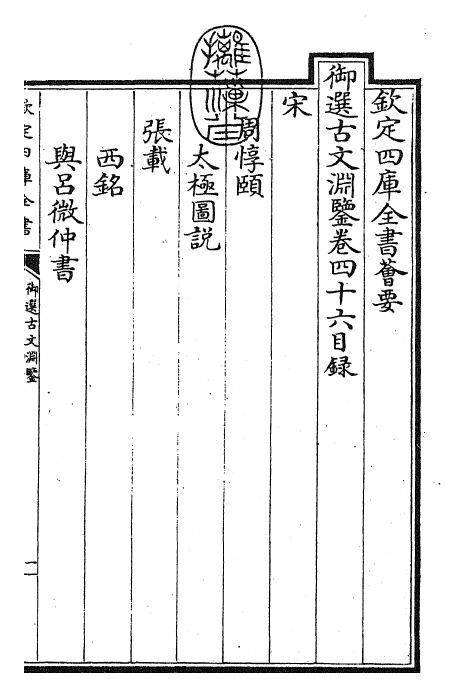 欽定四庫全書薈要
御選古文淵鑒卷四十六目録
宋
周惇頤
太極圖説
張載
西銘
與呂微仲書
欽定四庫全書
御選古文淵鑒
一